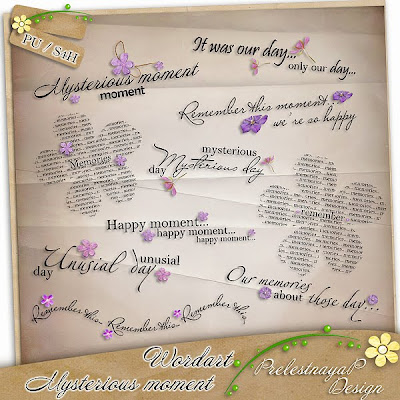 PU / S4H
It was our day...
only our day...
Mysterious moment
moment
Remember this moment,
we're so happy
Memories
mysterious
day Mysterious day
remember
Happy moment...
happy moment...
happy moment...
unusual
day Unusial day
Our memories
about those day...
Remember this... Remember this... Remember this...
Wordart
Mysterious moment
PrelestnayaP
Design